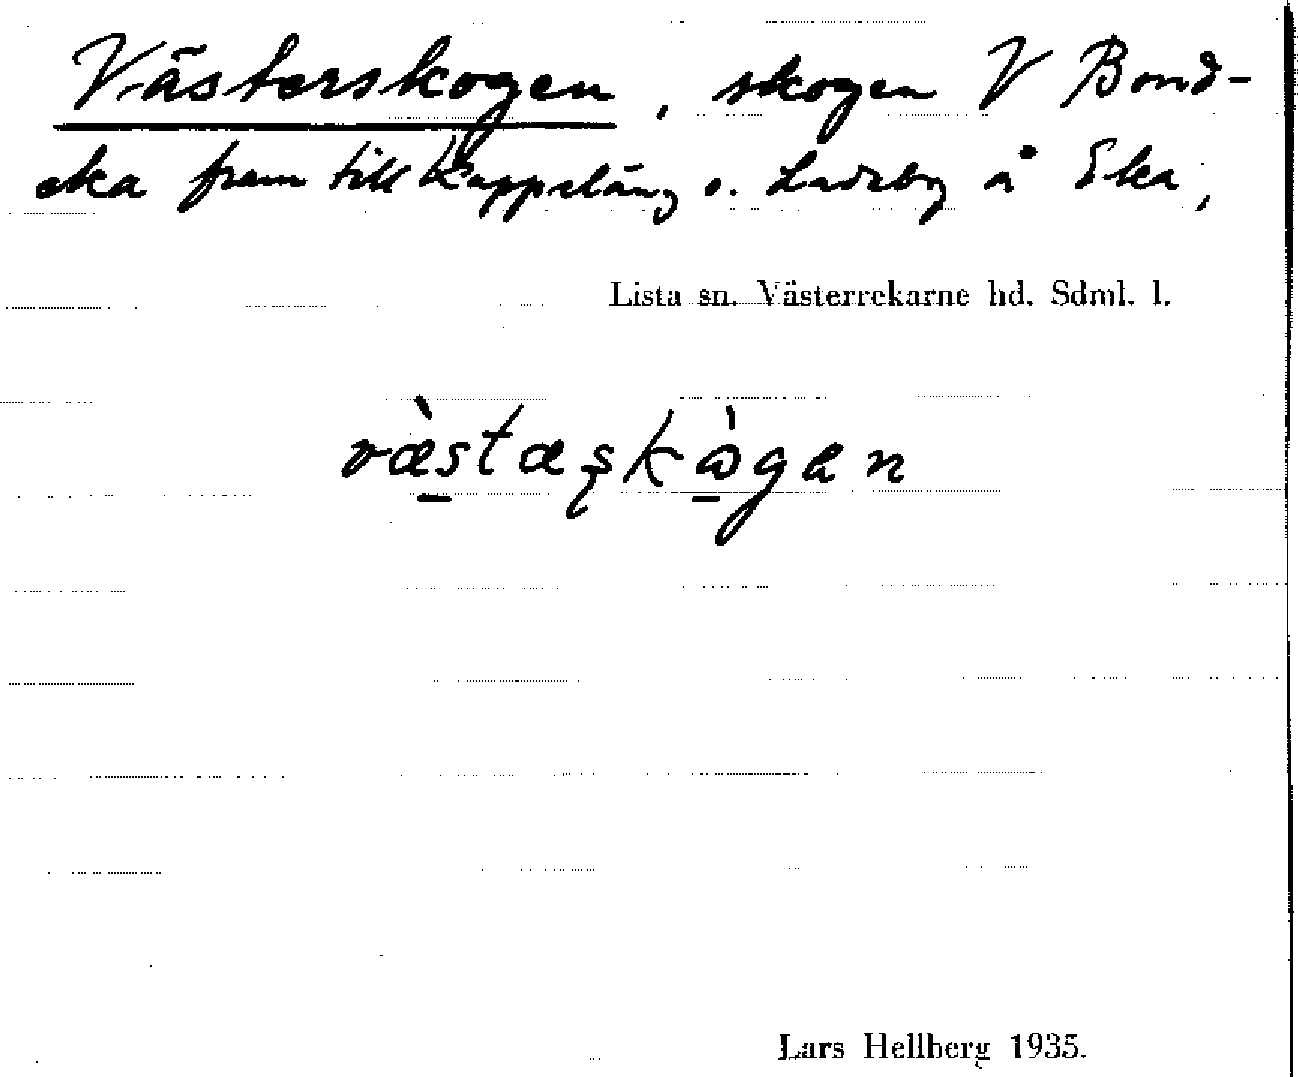 Västerskogen, skogen V Bond-
eka fram till Kappeläng o. Ladzby å Eka,
Lista sn. Västerrekarne hd. Sdml. l.
væ̀stæʂkɷ̀gan
Lars Hellberg 1935.